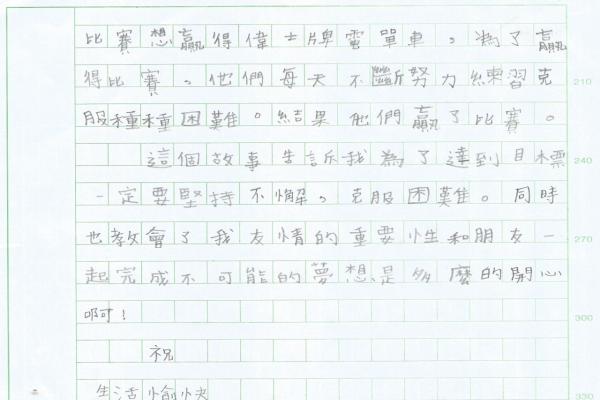 比賽想贏得偉士牌電單車，為了贏
得比賽。他們每天不斷努力練習克
服種種困難。結果他們贏了比賽。
這個故事告訴我為了達到目標
一定要堅持不懈，克服困難。同時
也教會了我友情的重要性和朋友一
起完成不可能的夢想是多麼的開心
啊！
祝
生活愉快
210
240
270
300
330